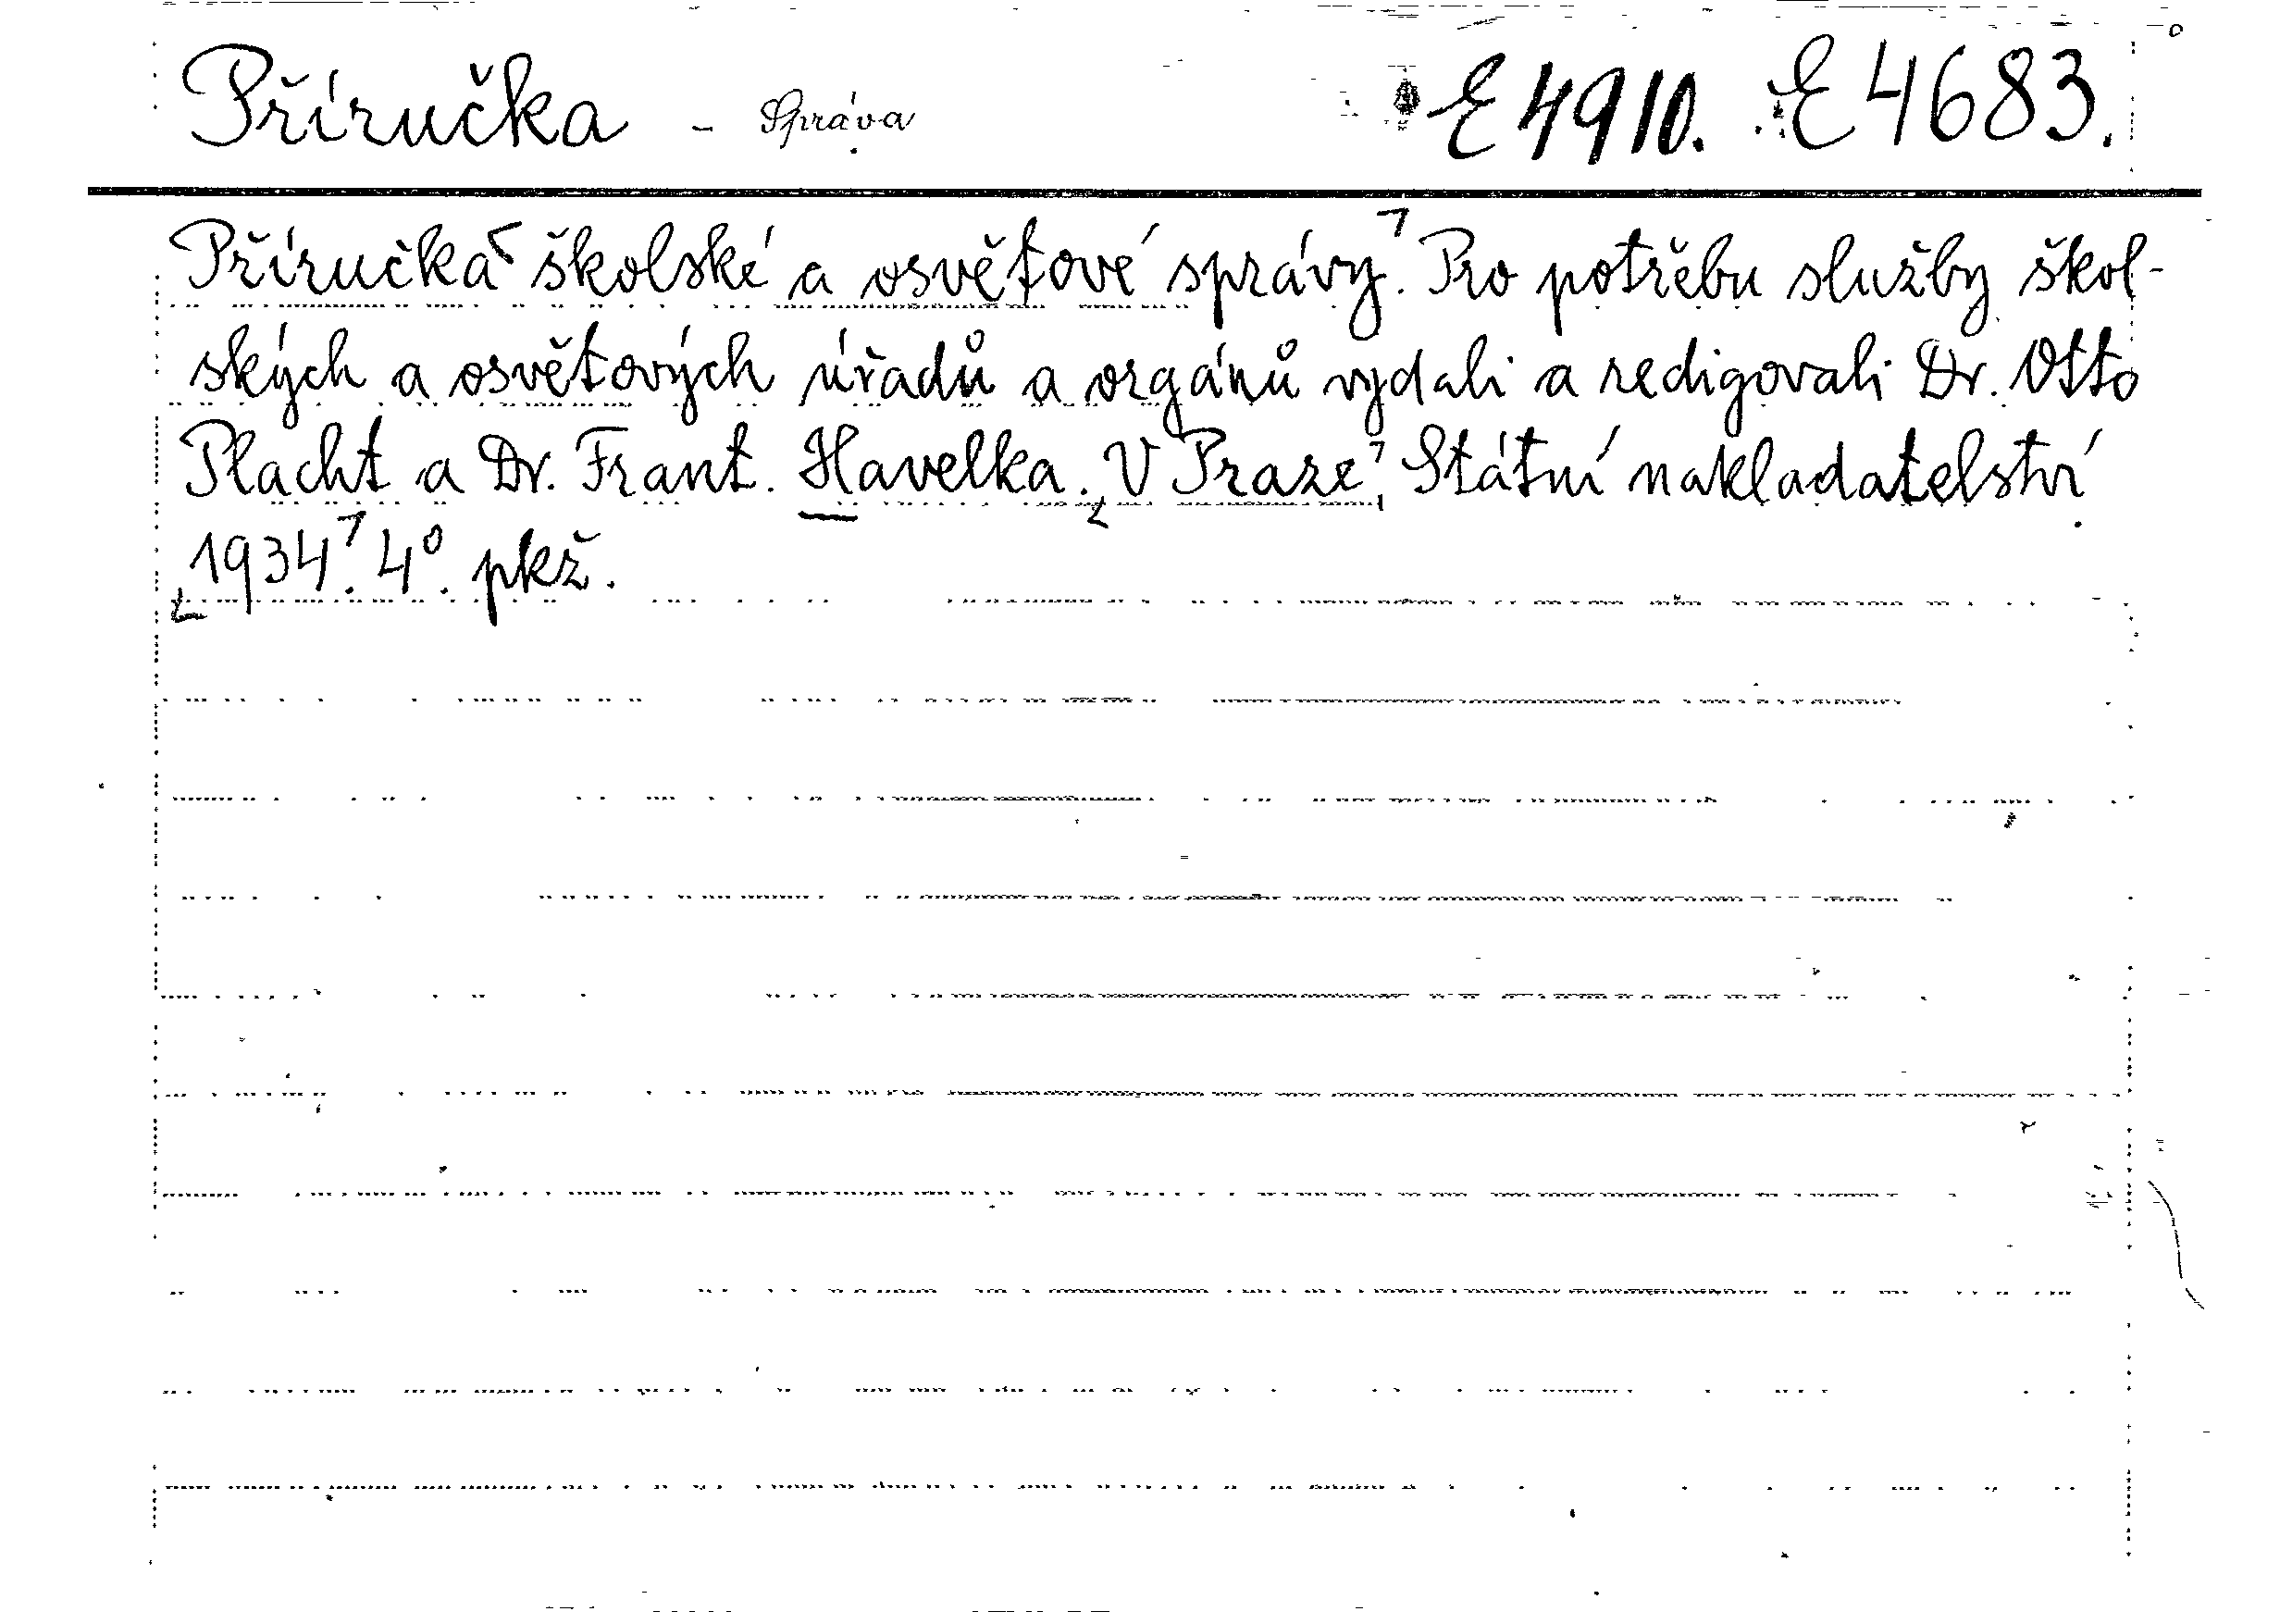 Příručka - Správa E 4910. E 4683.
Příručka školské a osvětové správy. Pro potřebu služby škol-
ských a osvětových úřadů a orgánů vydali a redigovali Dr. Otto
Placht a Dr. Frant. Havelka. V Praze, Státní nakladatelství
1934. 4°. pkž.